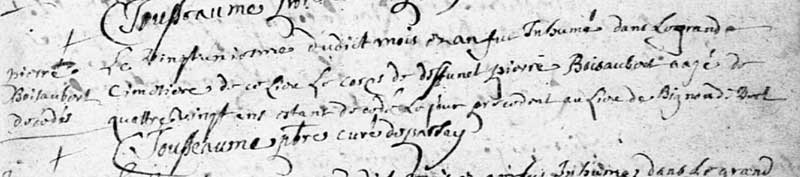 Tousseaume
Le vingtuniesme dudict mois et an fut Inhumé dans Le grande
Cimetiere de ce lieu Le corps de deffunct pierre Boisaubert aagé de
quattre vingt ans estant decedé Le jour precedent au lieu de
pierre
Boisaubert
decedé
Tousseaume pbre curé de
Inhumé dans Le grand